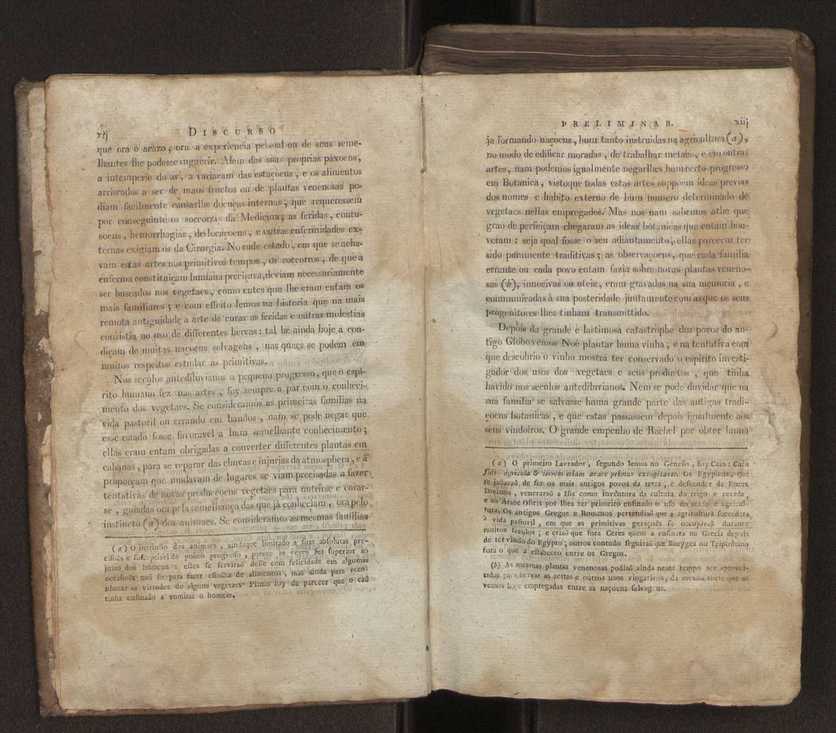 xij DISCURSO
que ora o acazo, ora a experiencia pessoal ou de seus seme-
lhantes lhe podesse suggerir. Alem das suas proprias paixoens,
a intemperie do ar, a variaçam das estaçoens, e os alimentos
arriscados a ser de maus fructos ou de plantas venenosas po-
diam facilmente causarlhe doenças internas, que requeressem
por conseguinte os soccorros da Medicina; as feridas, contu-
soens, hemorrhagias, deslocaçoens, e outras enfermidades ex-
ternas exigiam os da Cirurgia. No rude estado, em que se acha-
vam estas artes nos primitivos tempos, os soccorros, de que a
enferma constituiçam humana precisava, deviam necessariamente
ser buscados nos vegetaes, como entes que lhe eram entam os
mais familiares; e com effeito lemos na historia que na mais
remota antiguidade a arte de curar as feridas e outras molestias
consistia no uso de differentes hervas: tal he ainda hoje a con-
diçam de muitas naçoens selvagens, nas quaes se podem em
muitos respeitos estudar as primitivas.
Nos seculos antediluvianos o pequeno progresso, que o espi-
rito humano fez nas artes, foy sempre a par com o conheci-
mento dos vegetaes. Se consideramos as primeiras familias na
vida pastoril ou errando em bandos, nam se pode negar que
esse estado fosse favoravel a hum semelhante conhecimento;
ellas eram entam obrigadas a converter differentes plantas em
cabanas, para se reparar das chuvas e injurias da atmosphera, e á
proporçam que mudavam de lugares se viam precisadas a fazer
tentativas de novas producçoens vegetaes para nutrirse e curar-
se, guiadas ora pela semelhança das que já conheciam, ora pelo
instincto (a) dos animaes. Se consideramos as mesmas familias
(a) O instincto dos animaes, ainda que limitado a suas absolutas pre-
cisoens e susceptivel de pouco progresso, parece as vezes ser superior ao
juizo dos homens: e elles se serviraõ delle com felicidade em algumas
occasioens naõ só para fazer escolha de alimentos, mas ainda para reco-
nhecer as virtudes de alguns vegetaes. Plinio hay de parecer que o caõ
tinha ensinado a vomitar o homem.
PRELIMINAR. xiij
ja formando naçoens, hum tanto instruidas na agricultura (a),
no modo de edificar moradas, de trabalhar metaes, e em outras
artes, nam podemos igualmente negarlhes hum certo progresso
em Botanica, vistoque todas estas artes suppõem ideas previas
dos nomes e habito externo de hum numero determinado de
vegetaes nellas empregados. Mas nos nam sabemos athe que
grao de perfeiçam chegaram as ideas botanicas que entam hou-
veram: seja qual fosse o seu adiantamento, ellas parecem ter
sido puramente traditivas; as observaçoens, que cada familia
errante ou cada povo entam fazia sobre novas plantas veneno-
sas (b), innocivas ou uteis, eram gravadas na sua memoria, e
communicadas á sua posteridade juntamente com as que os seus
progenitores lhes tinham transmittido.
Depois da grande e lastimosa catastrophe dos povos do an-
tigo Globo vemos Noé plantar huma vinha, e na tentativa com
que descubrio o vinho mostra ter conservado o espirito investi-
gador dos usos dos vegetaes e seus productos, que tinha
havido nos seculos antediluvianos. Nem se pode duvidar que na
sua familia se salvasse huma grande parte das antigas tradi-
çoens botanicas, e que estas passassem depois igualmente aos
seus vindoiros. O grande empenho de Rachel por obter huma
(a) O primeiro Lavrador, segundo lemos no Genesis, foy Caim: Cain
fuit agricola &
Os Egypcios, que
se jactavaõ de ser os mais antigos povos da terra, e descender de huns
Deoses, veneravaõ a Isis como inventora da cultura do trigo e cevada,
e ao Arabe Osiris por lhes ter primeiro ensinado o uso do arado e agricul-
tura. Os antigos Gregos e Romanos pertendiaõ que a agricultura succedera
á vida pastoril, em que as primitivas geraçoës se occuparaõ durante
muitos seculos; e criaõ que fora Ceres quem a ensinara na Grecia depois
de ter vindo do Egypto; outros contudo seguiraõ que Buzyges ou Triptolemo
fora o que a estabeleceo entre os Gregos.
(b) As mesmas plantas venenosas podiaõ ainda nesse tempo ser aprovei-
tadas para ervar as settas e outros usos vingativos, da mesma sorte que as
vemos hoje empregadas entre as naçoens selvagens.